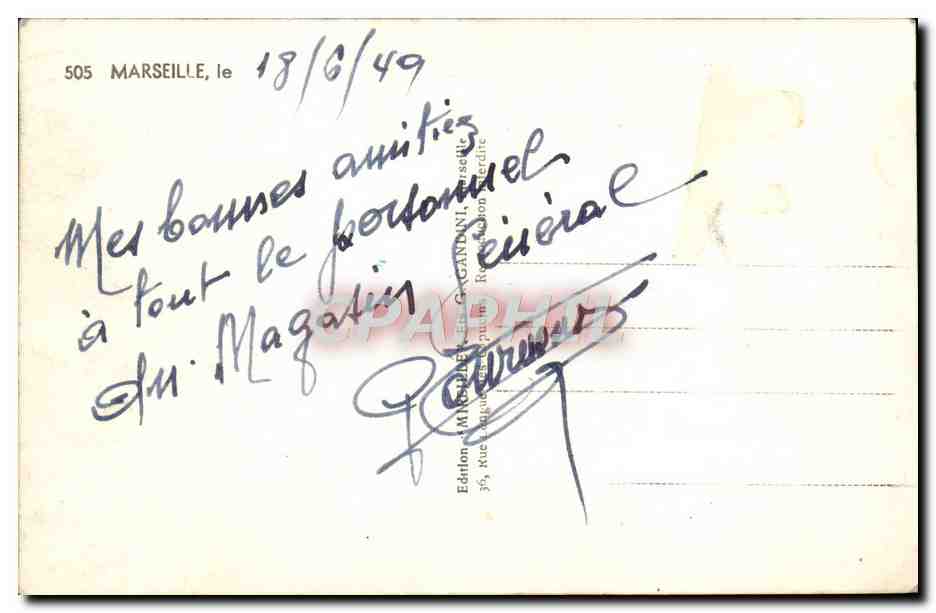 505 MARSEILLE, le 18/6/49
Mes bonnes amitiés
à tout le personnel
du Magasin Général
Edition "MIREILLE", E. GAGANDINI, Marseille
36, Rue Longue-des-Capucins Reproduction interdite
CPARAMA